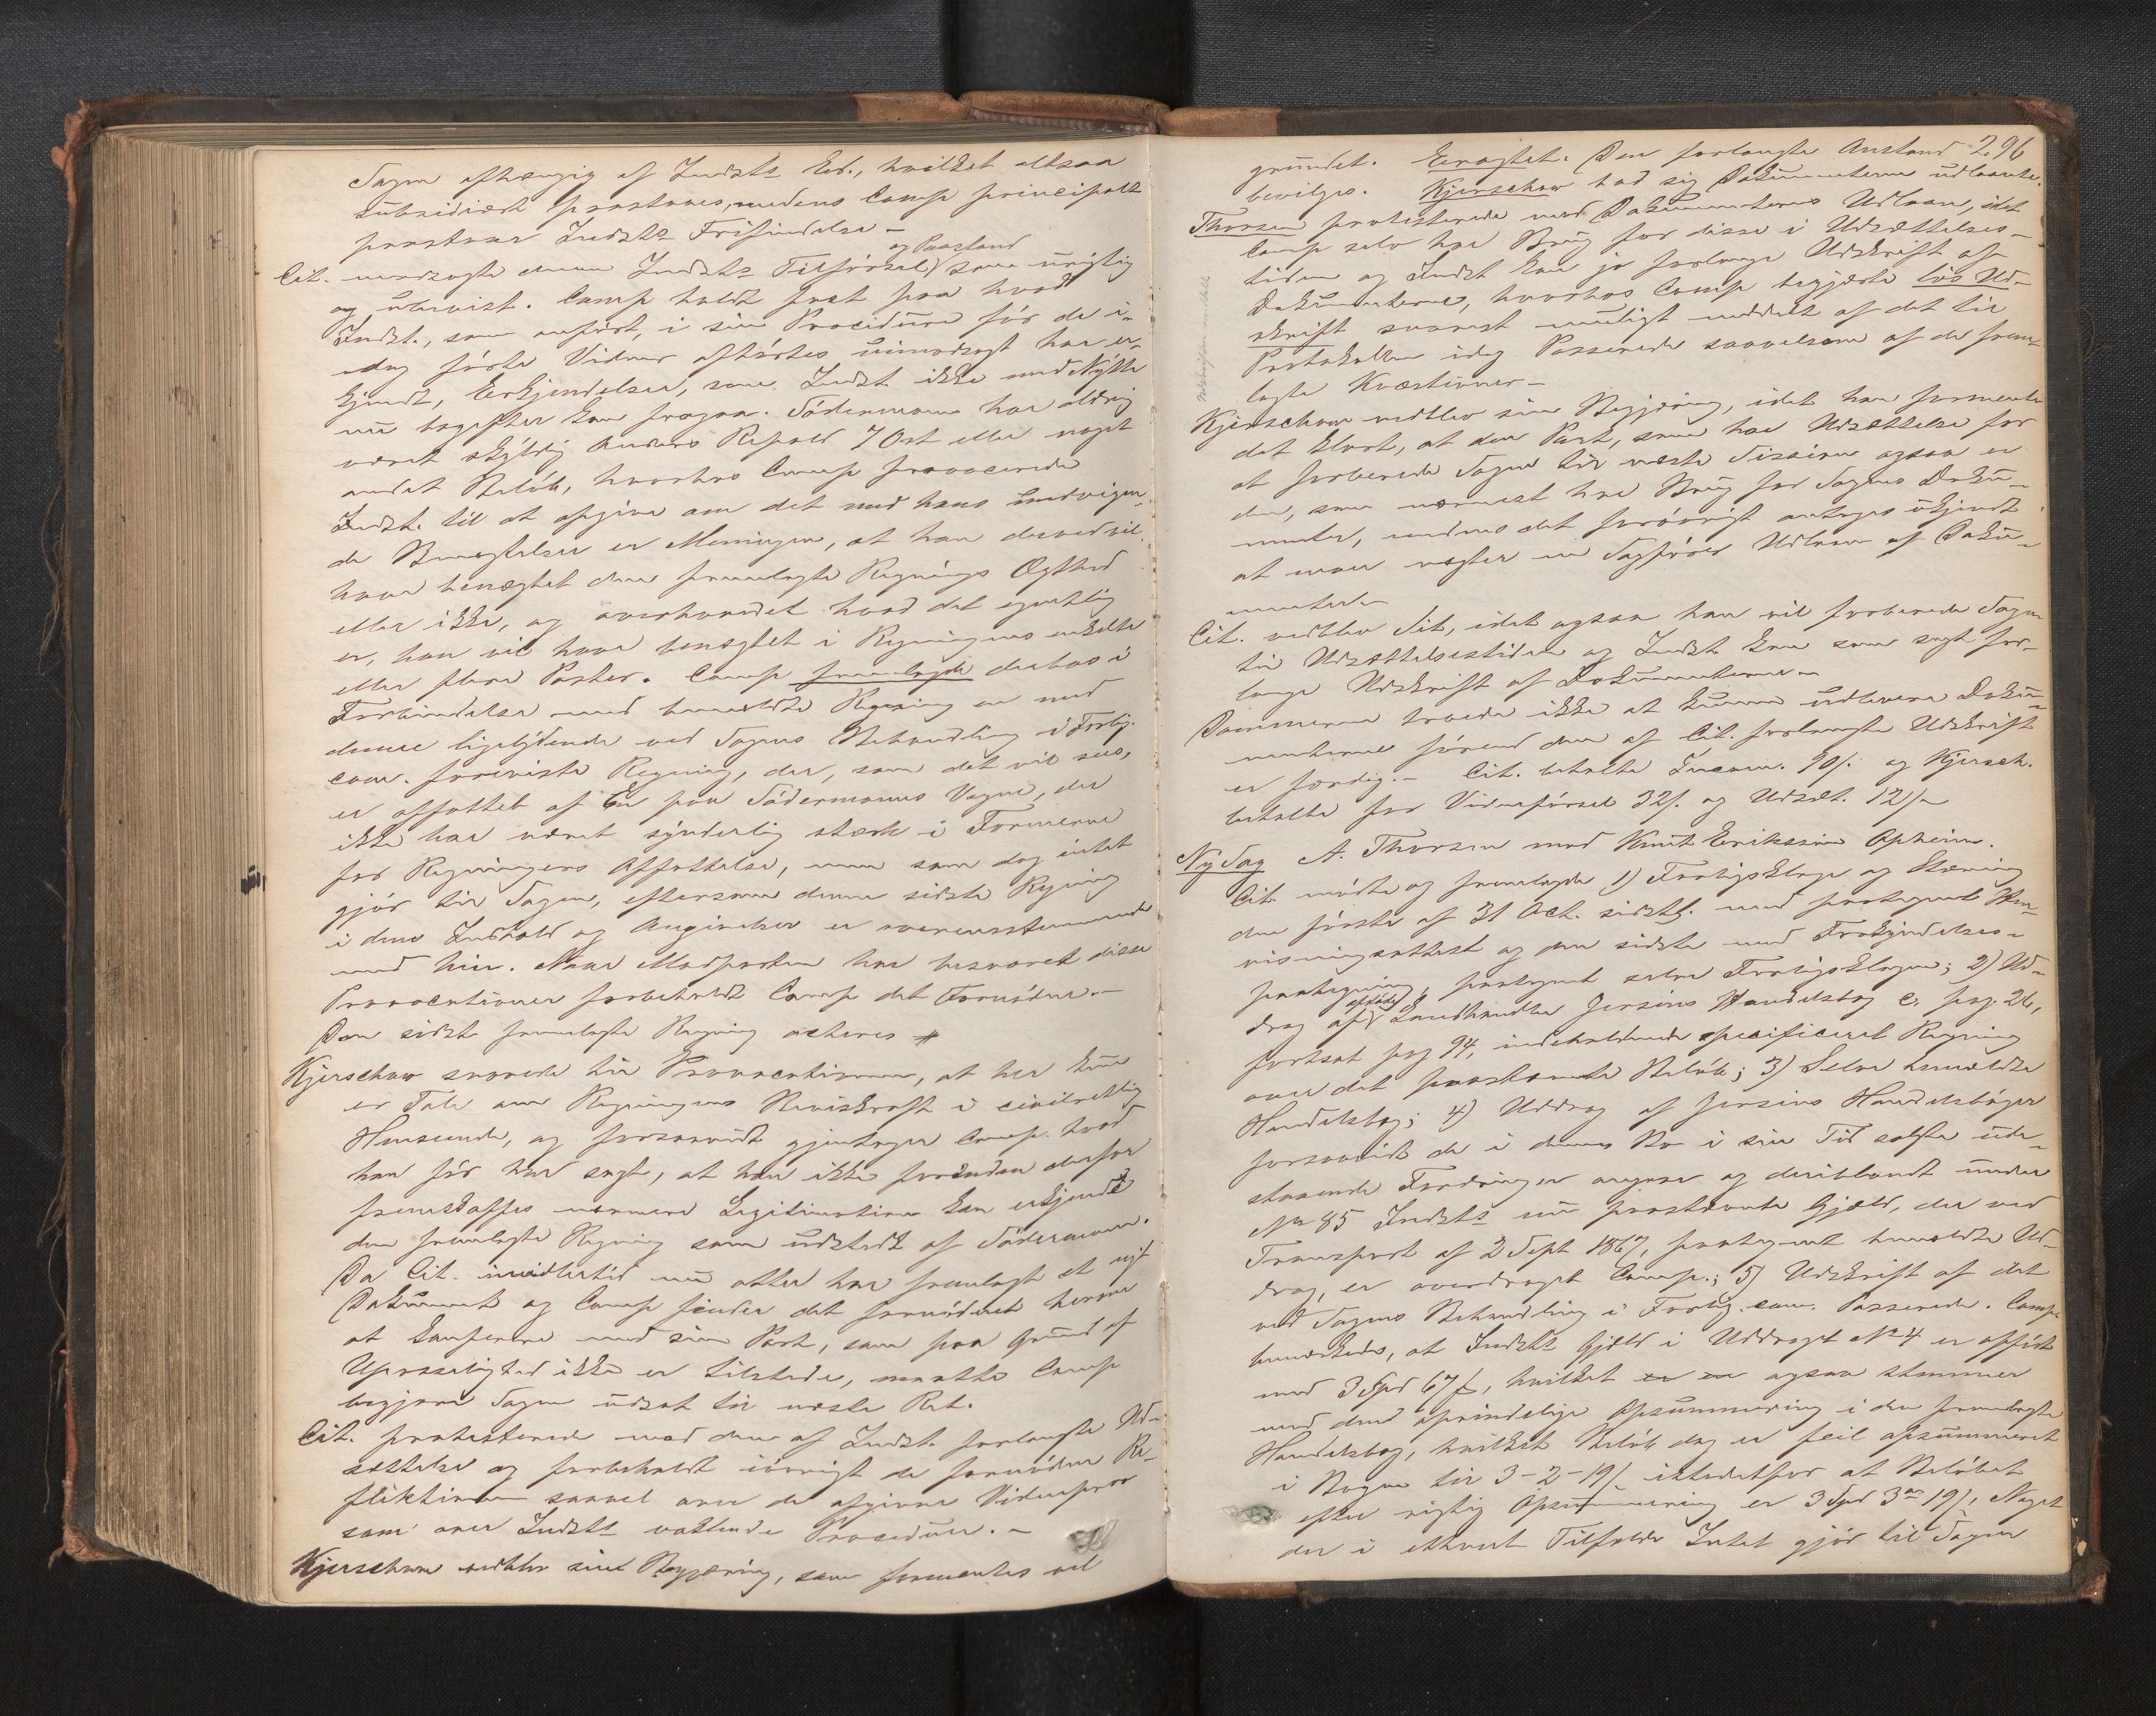 Sagen afhængig af Indsts Ed., hvilket altsaa
subsidiært paastaaes, medens Comp principalt
paastaar Indsts Frifindelse –
og Paastand
Cit. modsagde denne Indsts Tilførsel som urigtig
og ubevist. Comp holdt fast paa hvad
Indst., som anført, i sin Procedure før de i-
dag førte Vidner afhørtes uimodsagt har er-
kjendt, Erkjendelser, som Indst ikke med Nytte
nu bagefter kan fragaa. Södermann har aldrig
været skyldig Anders Refald 7 Ort eller noget
andet Beløb, hvorhos Comp provocerede
Indst. til at opgive om det med hans undvigen-
de Benægtelser er Meningen, at han derved vil
have benægtet den fremlagte Regnings Ægthed
eller ikke, og overhovedet hvad det egentlig
er, han vil have benægtet i Regningens enkelte
eller flere Poster. Comp fremlagde derhos i
Forbindelse med bemeldte Regning en med
denne ligelydende ved Sagens Behandling i Forlig.
com. foreviste Regning, der, som det vil sees,
er affattet af En paa Södermanns Vegne, der
ikke har været synderlig stærk i Formerne
for Regningers Affattelse, men som dog intet
gjør til Sagen, eftersom denne sidste Regning
i dens Indhold og Angivelser er overensstemmende
med hin. Naar Modparten har besvaret disse
Provocationer forbeholdt Comp det Fornødne. –
Den sidst fremlagte Regning acteres #
Kjerschow svarede til Provocationen, at her kun
er Tale om Regningens Beviskraft i civilretlig
Henseende, og forsaavidt gjentager Comp. hvad
han før har sagt, at han ikke forinden derfor
fremskaffes nærmere Legitimation kan erkjende
den fremlagte Regning som udstedt af Södermann.
Da Cit. imidlertid nu atter har fremlagt et nyt
Dokument og Comp finder det fornødent herom
at konferere med sin Part, som paa Grund af
Upasselighed ikke er tilstede, maatte Comp
begjære Sagen udsat til næste Ret.
Cit. protesterede mod den af Indst. forlangte Ud-
sættelse og forbeholdt iøvrigt de fornødne Re-
flektioner saavel over de afgivne Vidneprov
som over Indsts vaklende Procedure. –
Kjerschow vedblev sin Begjæring, som formentes vel
296
grundet. Eragtet. Den forlangte Anstand
bevilges. Kjerschow bad sig Dokumenterne udlaante.
Thorsen protesterede mod Dokumenternes Udlaan, idet
Comp selv har Brug for disse i Udsættelses-
tiden og Indst kan jo forlange Udskrift af
Dokumenterne, hvorhos Comp begjærte løs Ud-
skrift snarest muligt meddelt af det til
Protokollen idag Passerede saavelsom af de frem-
lagte Kvæstioner –
Kjerschow vedblev sin Begjæring, idet han formente
det klart, at den Part, som har Udsættelse for
at forberede Sagen til næste Session ogsaa er
den, som nærmest har Brug for Sagens Doku-
menter, medens det forøvrigt antages ukjendt
at man negter en Sagfører Udlaan af Doku-
menter –
Cit. vedblev Sit, idet ogsaa han vil forberede Sagen
til Udsættelsestiden og Indst. kan som sagt for-
lange Udskrift af Dokumenterne –
Dommeren troede ikke at kunne udlevere Doku-
menterne førend den af Cit. forlangte Udskrift
er færdig. – Cit. betalte Incam. 90/. og Kjersch.
betalte for Vidneførsel 32/. og Udsæt. 12/ –
Ny Sag A. Thorsen mod Knut Eriksson Opheim.
Cit. mødte og fremlagde 1) Forligsklage og Stævning
den første af 31 Oct. sidstl. med paategnet Hen-
visningsattest og den sidste med Forkyndelses-
paategning, paategnet selve Forligsklagen; 2) Ud-
afdøde
drag af Landhandler Jersins Handelsbog C. pag. 26,
fortsat pag 94, indeholdende specificeret Regning
over det paastævnte Beløb; 3) Selve bemeldte
Handelsbog; 4) Uddrag af Jersins Handelsbøger
forsaavidt de i dennes Bo i sin Tid solgte ude-
staaende Fordringer angaar og deriblandt under
No 85 Indsts nu paastævnte Gjæld, der ved
Transport af 2 Sept 1867, paategnet bemeldte Ud-
drag, er overdraget Comp.; 5) Udskrift af det
ved Sagens Behandling i Forlig.com. Passerede. Comp.
bemærkede, at Indsts Gjæld i Uddraget No 4 er opført
med 3 Spd 67/, hvilket ogsaa stemmer
med den oprindelige Opsummering i den fremlagte
Handelsbog, hvilket Beløb dog er feil opsummeret
i Bogen til 3-2-19/ istedetfor at Beløbet
efter rigtig Opsummering er 3 Spd 3 19/, Noget
der i ethvert Tilfælde Intet gjør til Sagen